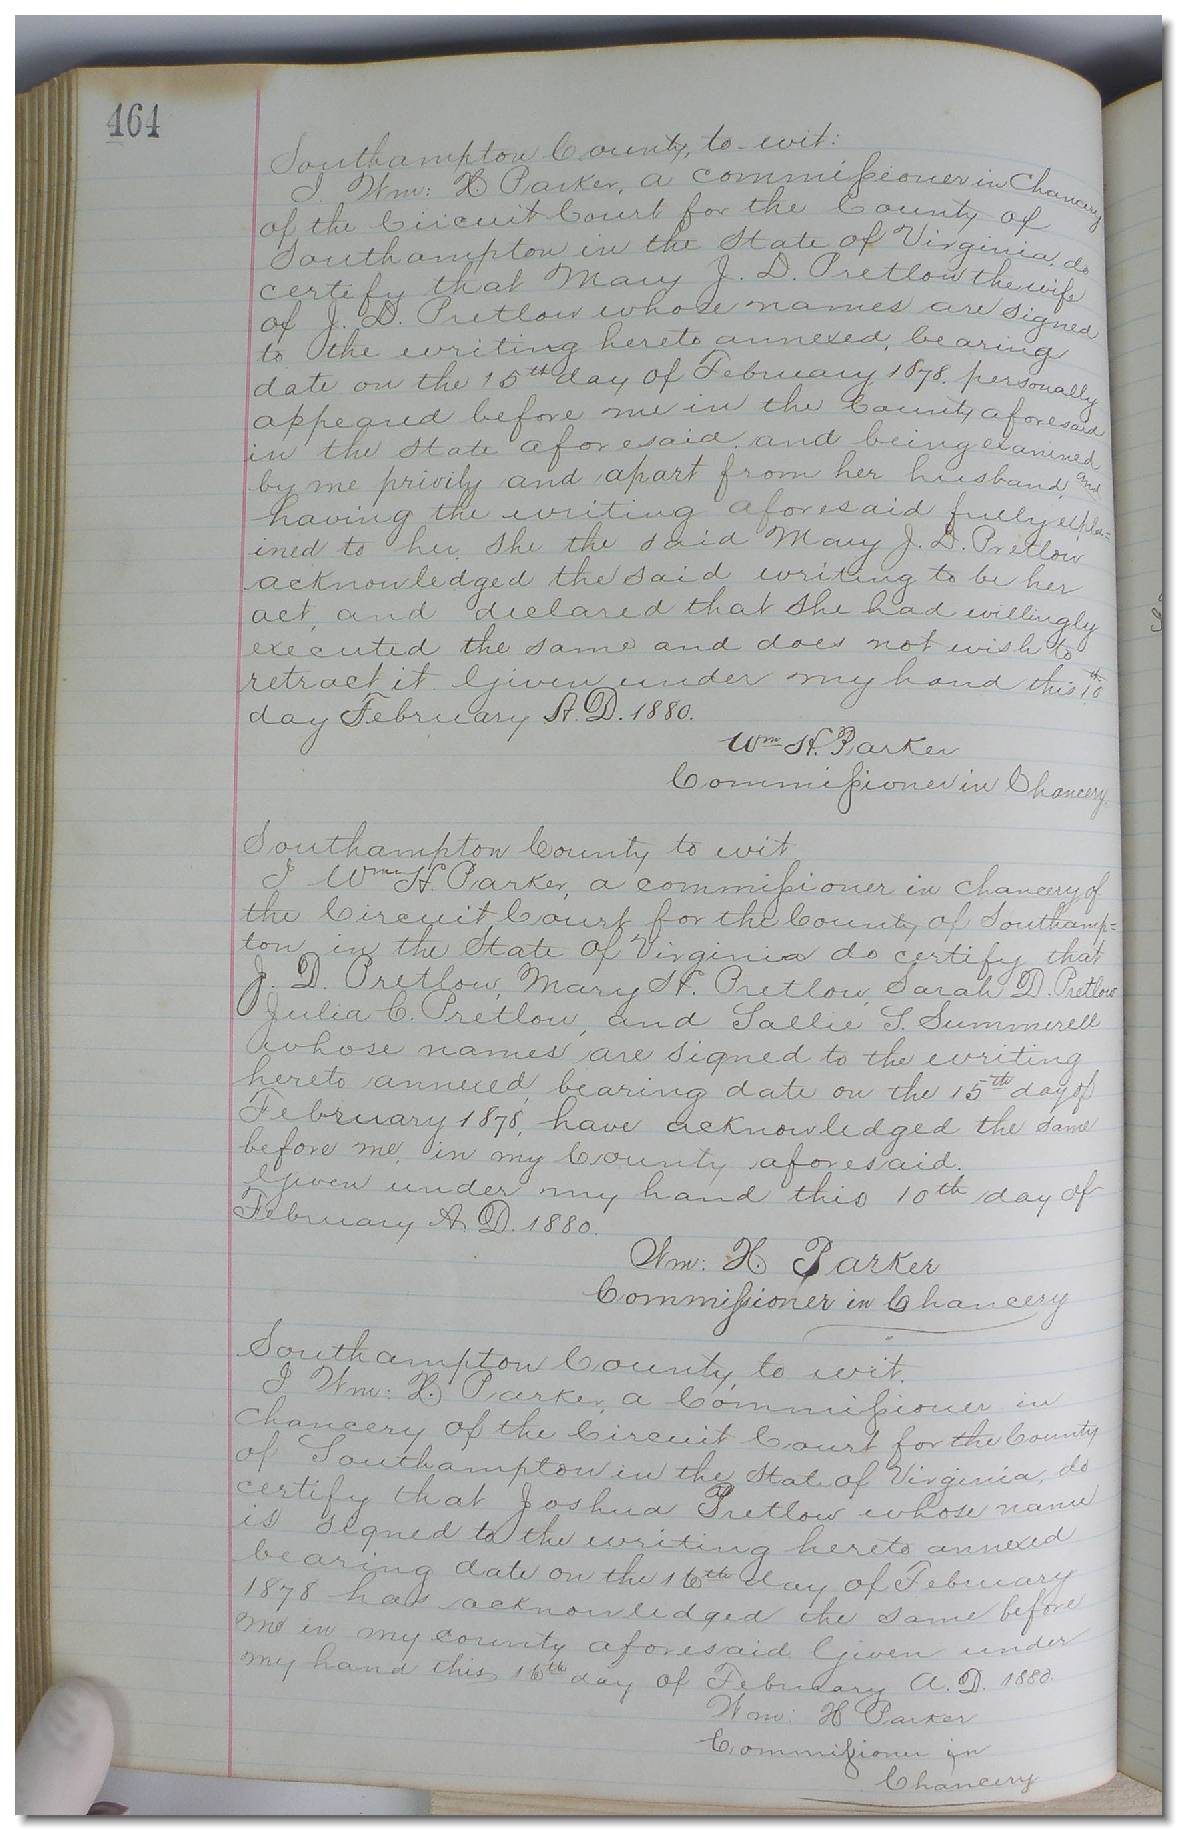 464
Southampton County, to-wit:
I. Wm: H. Parker, a commissioner in Chancery
of the Circuit Court for the County of
Southampton in the State of Virginia, do
certify that Mary J. D. Pretlow the wife
of J. D. Pretlow whose names are signed
to the writing hereto annexed, bearing
date on the 15th day of February 1878. personally
appeared before me in the County aforesaid
in the State aforesaid. and being examined
by me privily and apart from her husband, and
having the writing aforesaid fully expla=
ined to her. She the said Mary J. D. Pretlow
acknowledged the said writing to be her
act, and declared that she had willingly
executed the same and does not wish to
retract it. Given under my hand this 10th
day February A.D. 1880.
Wm H. Parker
Commissioner in Chancery.
Southampton County to wit
I Wm H. Parker, a commissioner in chancery of
the Circuit Court for the County of Southamp=
ton in the State of Virginia do certify that
J. D. Pretlow, Mary H. Pretlow, Sarah D. Pretlow
Julia C. Pretlow, and Sallie S. Summerell
whose names are signed to the writing
hereto annexed, bearing date on the 15th day of
February 1878, have acknowledged the same
before me, in my County aforesaid.
Given under my hand this 10th day of
February A.D. 1880.
Wm: H. Parker
Commissioner in Chancery
Southampton County, to wit.
I Wm: H. Parker, a Commissioner in
Chancery of the Circuit Court for the County
of Southampton in the State of Virginia, do
certify that Joshua Pretlow whose name
is signed to the writing hereto annexed
bearing date on the 16th day of February
1878 has acknowledged the same before
me in my county aforesaid. Given under
my hand this 16th day of February A.D. 1880.
Wm: H Parker
Commissioner in
Chancery